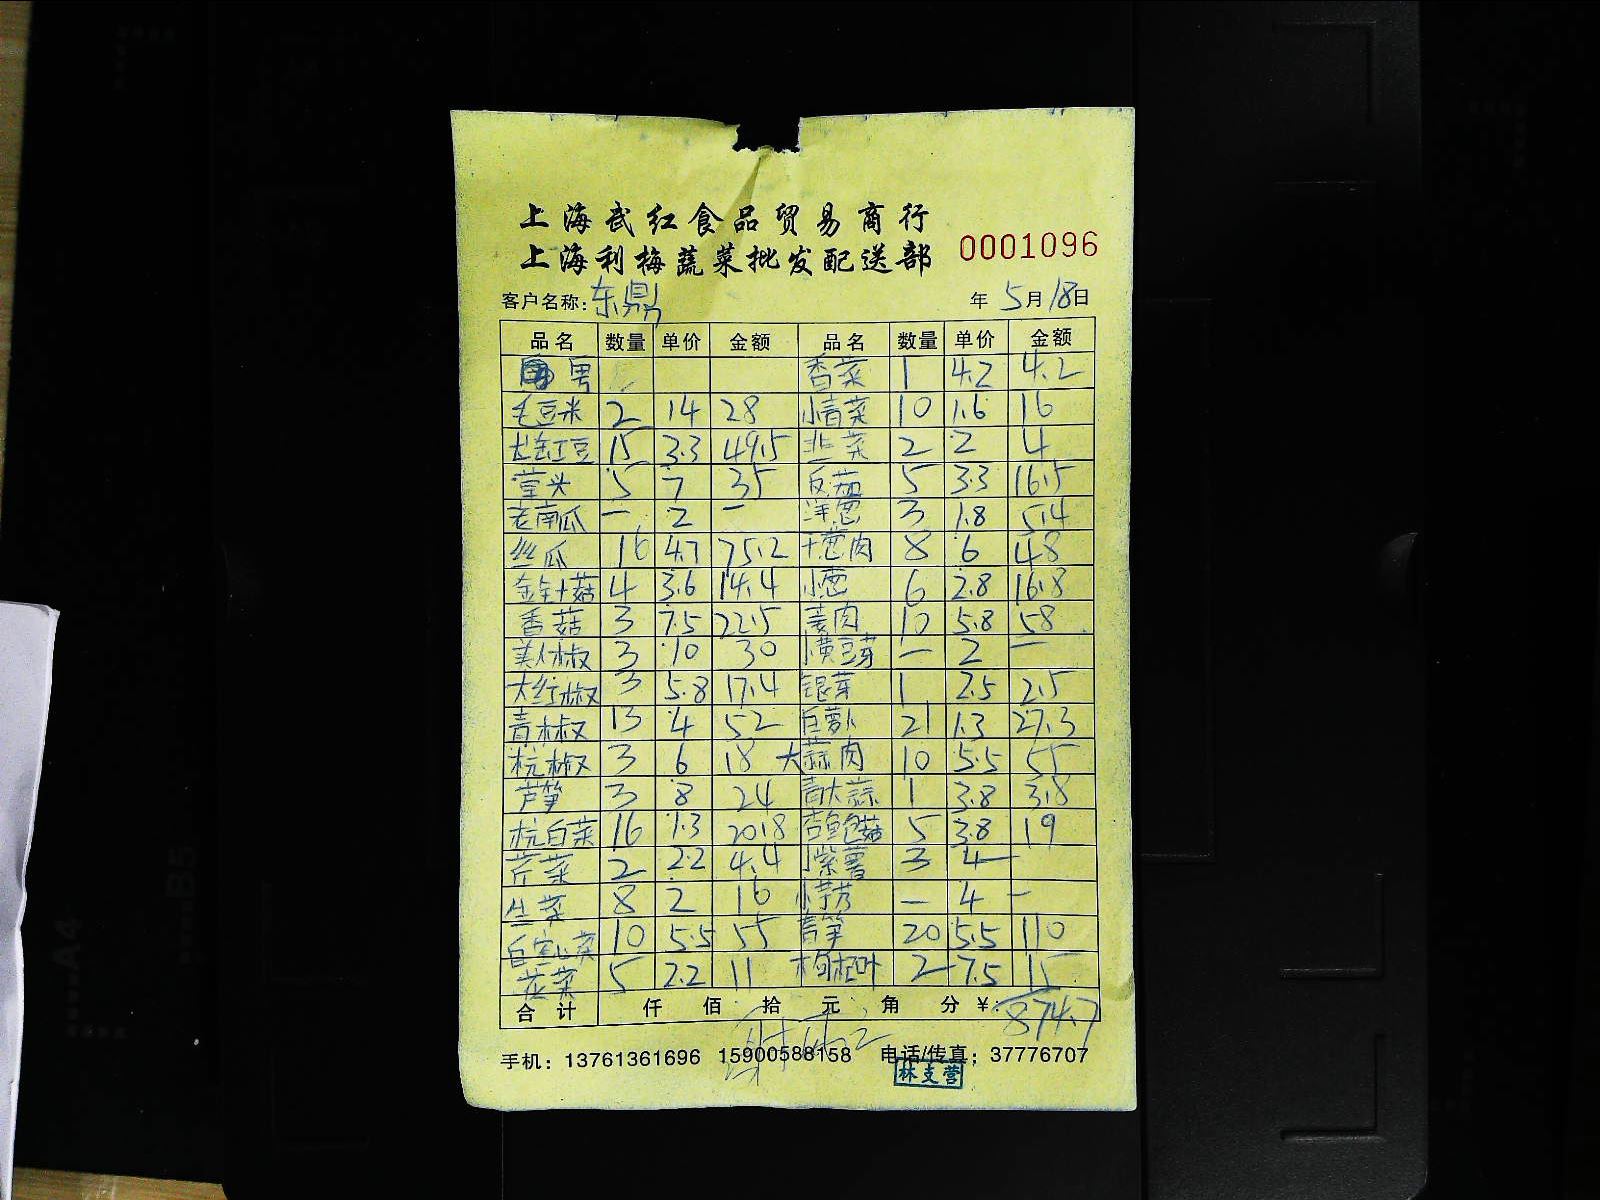 上海武红食品贸易商行
上海利梅蔬菜批发配送部 0001096
客户名称: 东鼎 年 5月18日
品名 数量 单价 金额 品名 数量 单价 金额
香菜 1 4.2 4.2
毛豆米 2 14 28 小青菜 10 1.6 16
长豇豆 15 3.3 49.5 韭菜 2 2 4
5 7 35 反茄 5 3.3 16.5
老南瓜 — 2 — 洋葱 3 1.8 5.4
丝瓜 16 4.7 75.2 干葱肉 8 6 48
金针菇 4 3.6 14.4 小葱 6 2.8 16.8
香菇 3 7.5 22.5 姜肉 10 5.8 58
美人椒 3 10 30 小黄豆芽 — 2 —
大红椒 3 5.8 17.4 银芽 1 2.5 2.5
青椒 13 4 52 白萝卜 21 1.3 27.3
杭椒 3 6 18 大蒜肉 10 5.5 55
芦笋 3 8 24 青大蒜 1 3.8 3.8
杭白菜 16 1.3 20.8 杏鲍菇 5 3.8 19
芹菜 2 2.2 4.4 小紫薯 3 4 —
生菜 8 2 16 小芋艿 — 4 —
白空心菜 10 5.5 55 青笋 20 5.5 110
花菜 5 2.2 11 枸杞叶 2 7.5 15
合计 仟 佰 拾 元 角 分 ¥: 874.7
手机: 13761361696 15900588158 电话/传真: 37776707
林支营